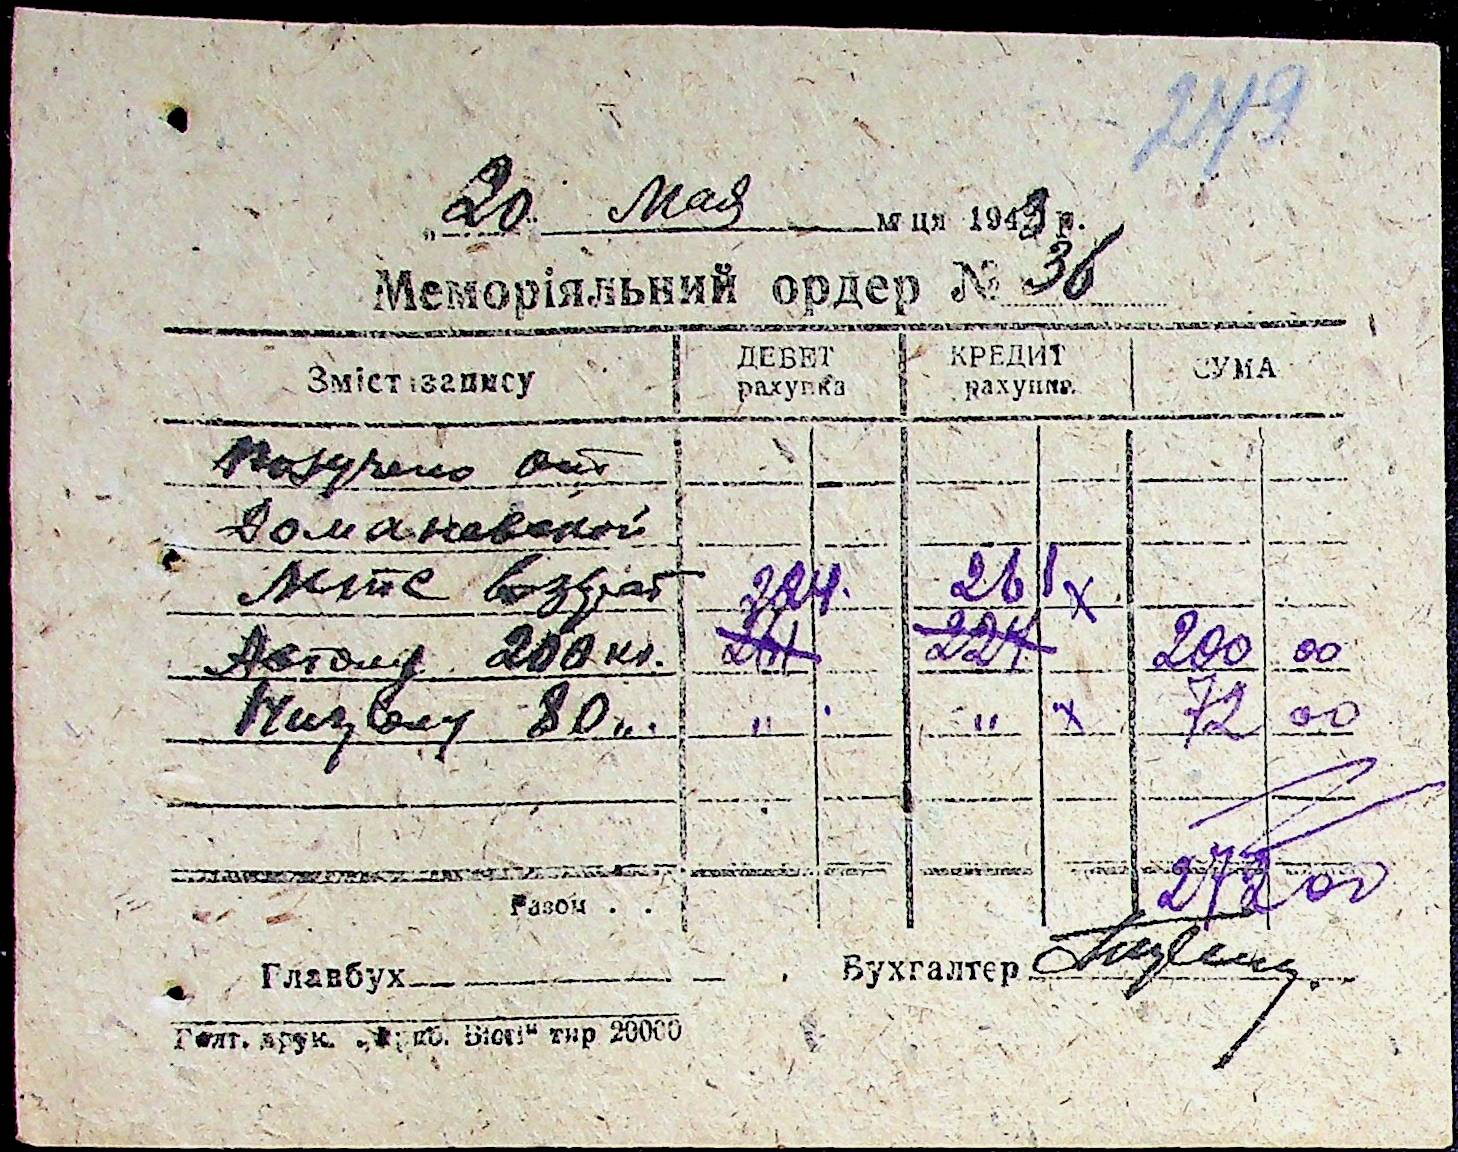 249
„20" Мая м-ця 1943 р.
Меморіяльний ордер № 36
Зміст запису ДЕБЕТ рахунка КРЕДИТ рахунка СУМА
Получено от
Доманевской
МТС возврат 224. 261 х
Автолу 200 кг. 261 224 200 00
Нигролу 80 „. „ „ х 72 00
272 00
Разом . .
Главбух Бухгалтер
Голт. друк. „Приб. Вісті" тир 20000